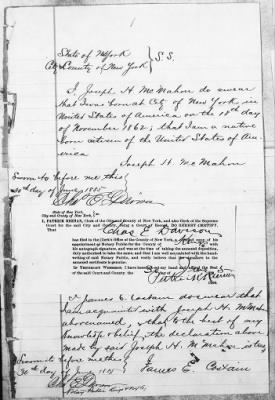 State of New York
City & County of New York } S.S.
I, Joseph H. McMahon do swear
that I was born at City of New York, in
United States of America on the 18th day
of November 1862; that I am a native
born citizen of the United States of Am-
erica
Joseph H. McMahon
Sworn to before me this
30th day of June 1885
State of New York,
City and County of New York, } ss.
I, PATRICK KEENAN, Clerk of the City and County of New York, and also Clerk of the Supreme
Court for the said City and County, being a Court of Record, DO HEREBY CERTIFY,
That Chas E. Davison
has filed in the Clerk's Office of the County of New York, a
appointment as Notary Public for the County of
with his autograph signature, and was at the time of taking the annexed deposition,
duly authorized to take the same, and that I am well acquainted with the hand-
writing of said Notary Public, and verily believe that the signature to the
annexed certificate is genuine.
IN TESTIMONY WHEREOF, I have hereunto set my hand and affixed the Seal
of the said Court and County, the
I, James E. Costain do swear that I
am acquainted with Joseph H. McMahon
above named, & that to the best of my
knowledge & belief, the declaration above
made by said Joseph H. McMahon is true
Sworn to before me this
30th day of June 1885
James E. Costain